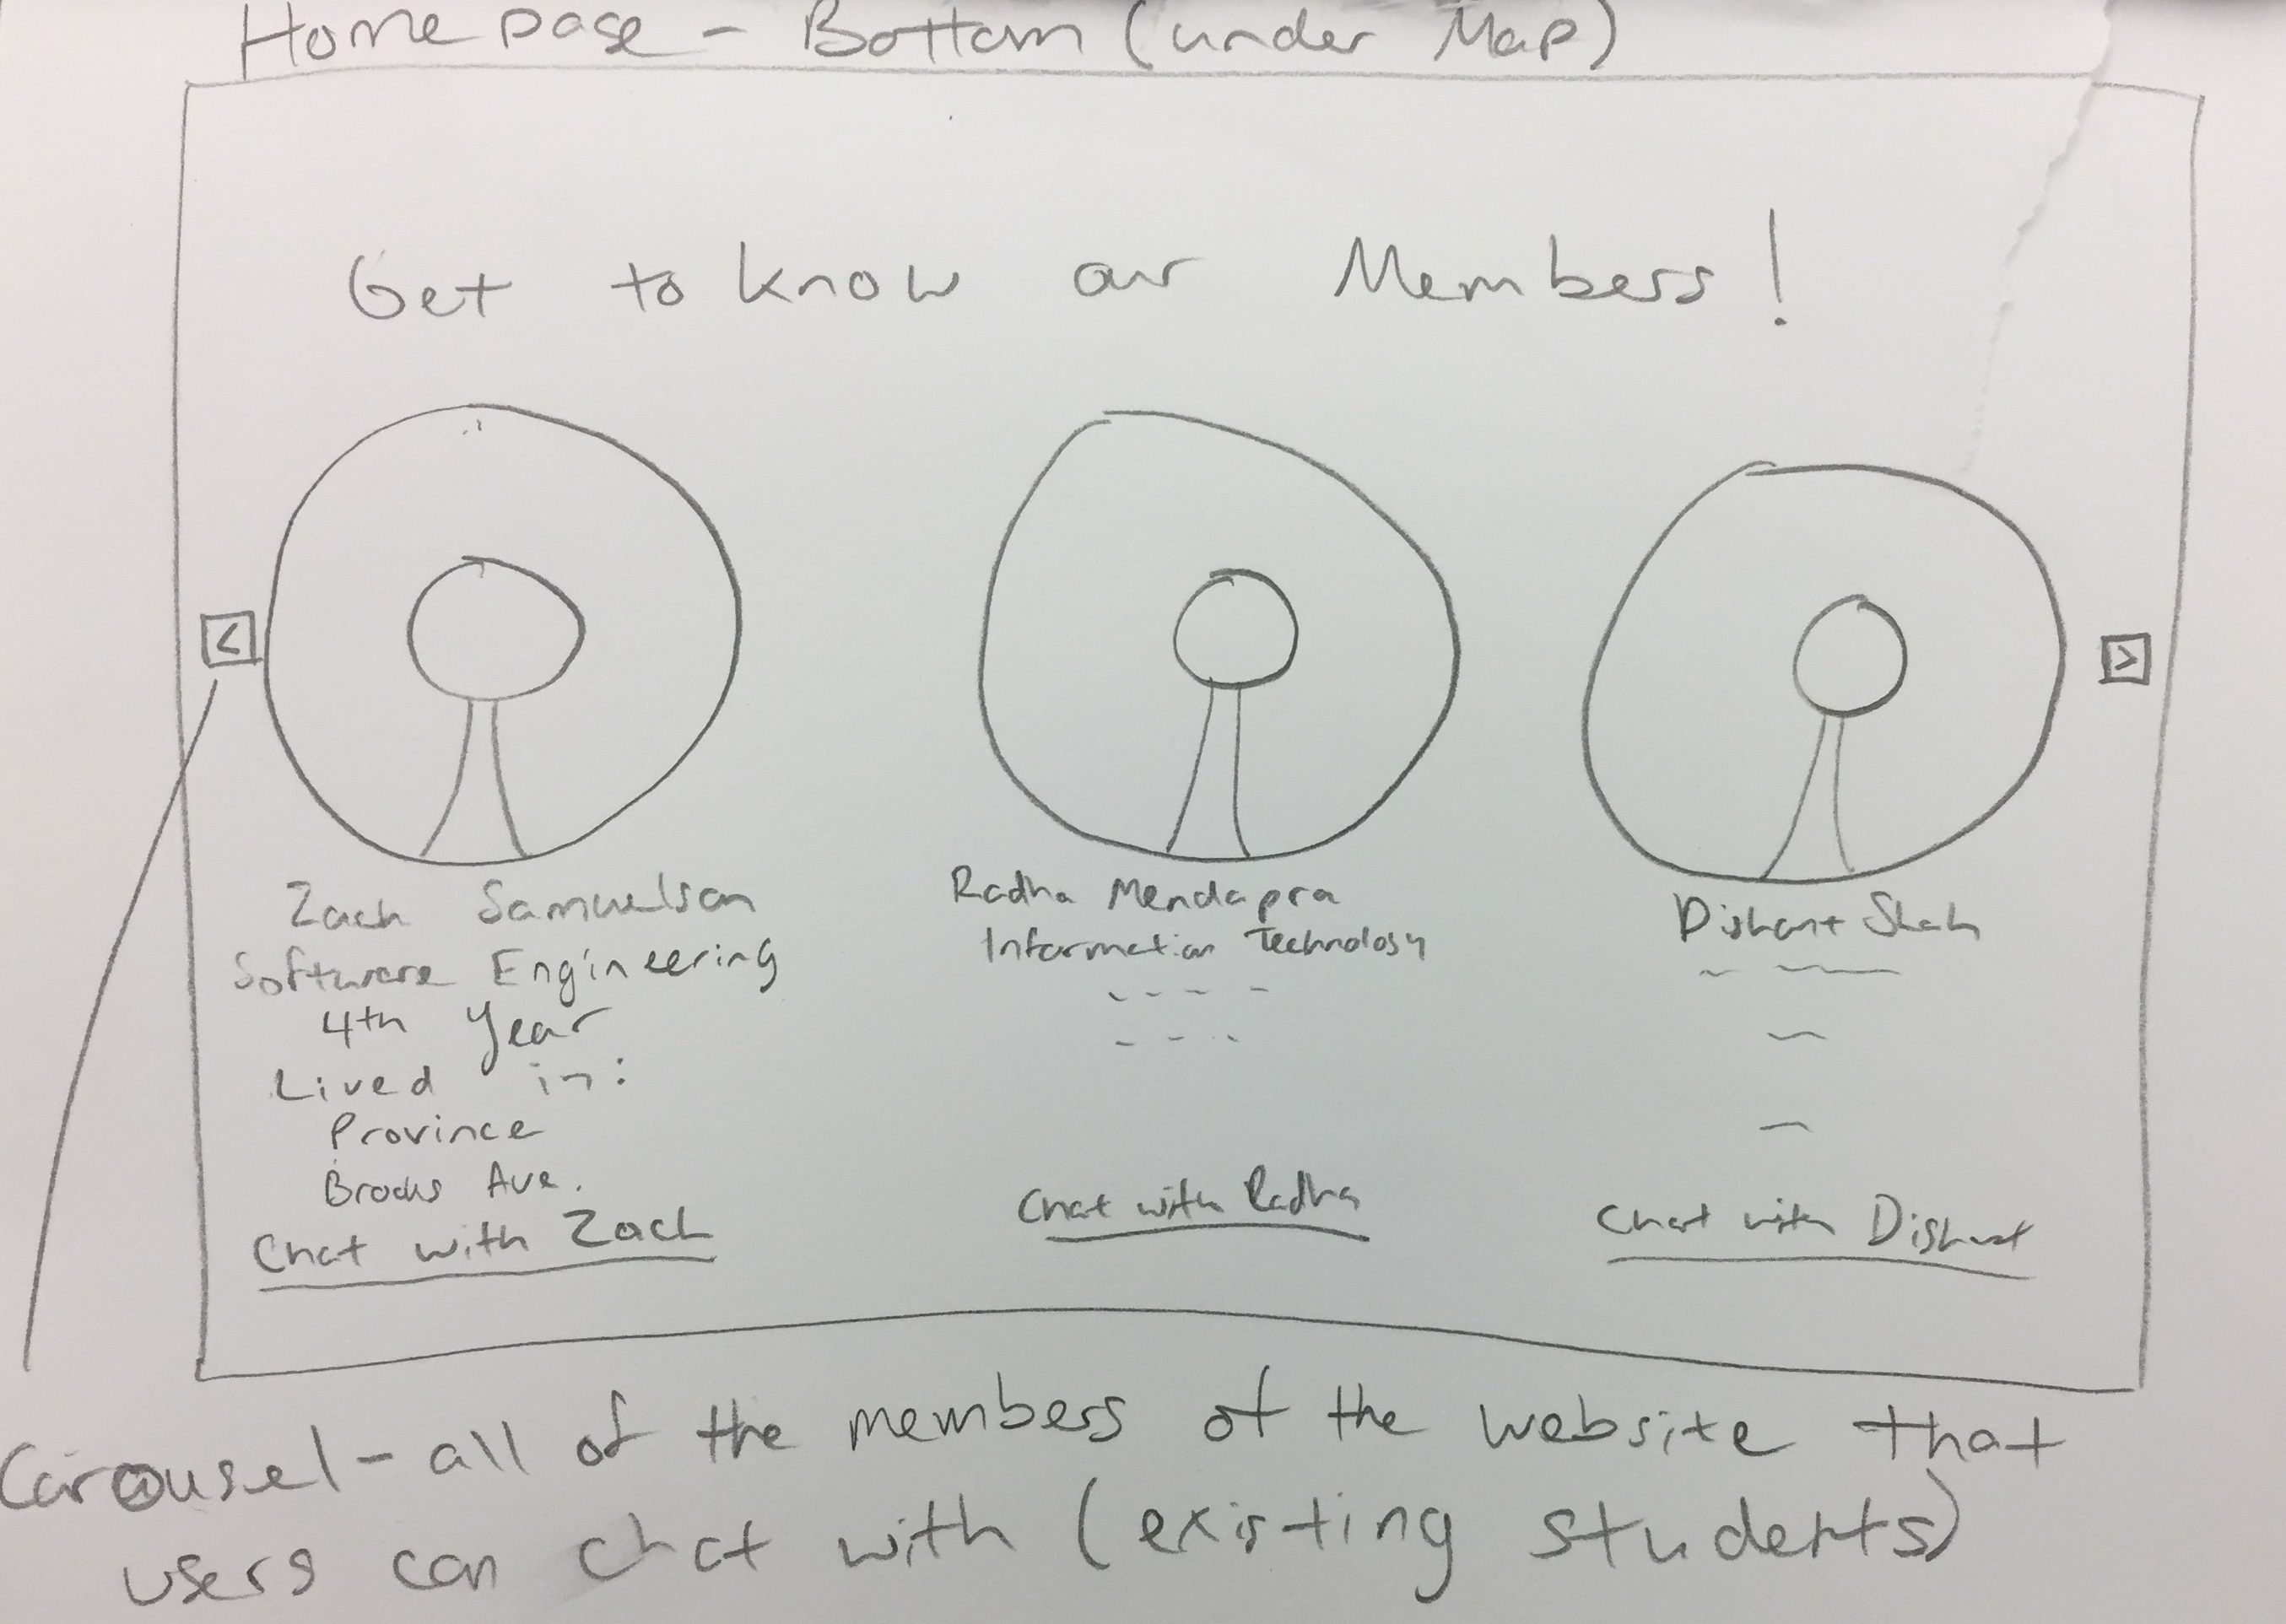 Home page - Bottom (under Map)
Get to know our Members!
<
>
Zach Samuelson
Software Engineering
4th Year
Lived in:
Province
Brooks Ave.
Chat with Zach
Radha Mendapra
Information Technology
Chat with Radha
Dishant Shah
Chat with Dishant
Carousel - all of the members of the website that
users can chat with (existing students)